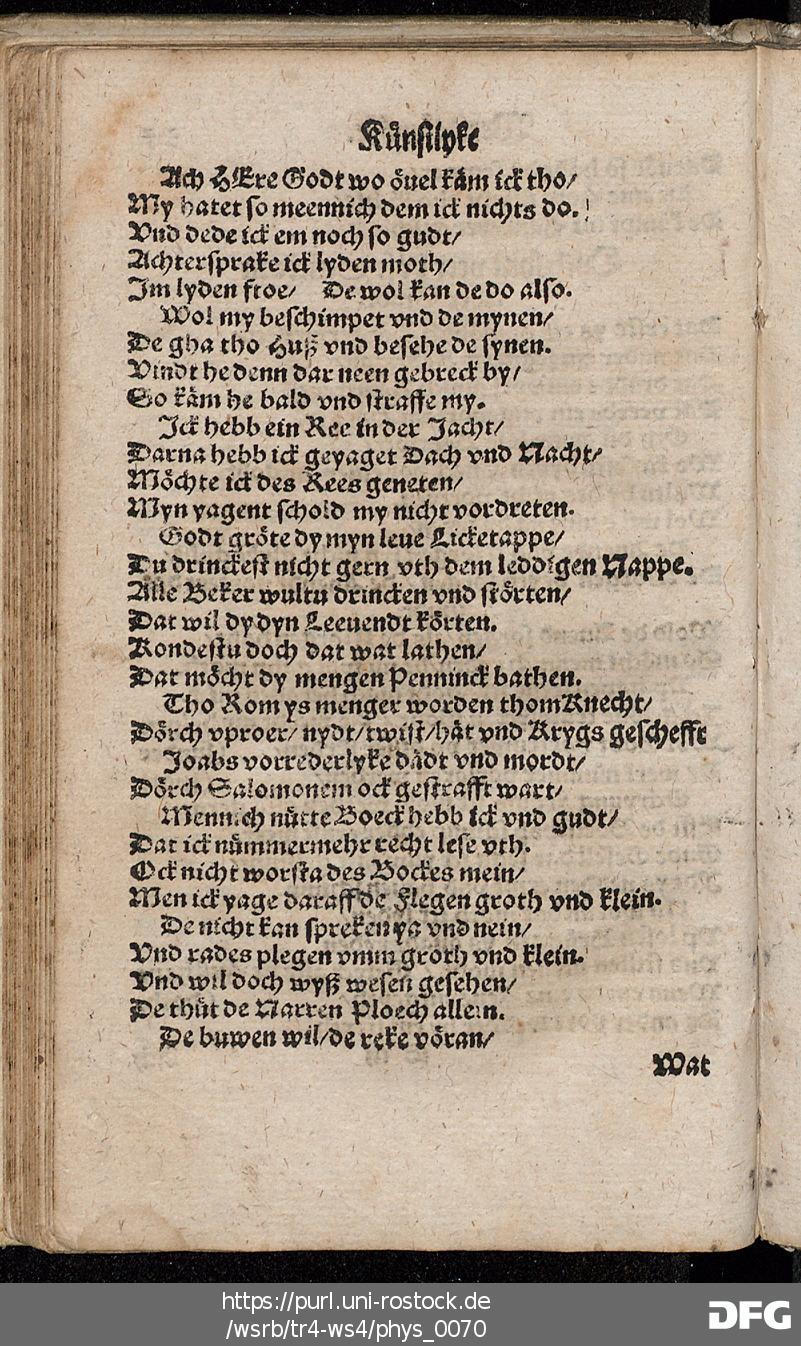 Künstlyke
Ach HEre Godt wo öuel käm ick tho/
My hatet so meennich dem ick nichts do.
Vnd dede ick em noch so gudt/
Achtersprake ick lyden moth/
Im lyden froe/ De wol kan de do also.
Wol my beschimpet vnd de mynen/
De gha tho Huß vnd besehe de synen.
Vindt he denn dar neen gebreck by/
So käm he bald vnd straffe my.
Ick hebb ein Ree in der Jacht/
Darna hebb ick geyaget Dach vnd Nacht/
Möchte ick des Rees geneten/
Myn yagent schold my nicht vordreten.
Godt gröte dy myn leue Licketappe/
Du drinckest nicht gern vth dem leddigen Nappe.
Alle Beker wultu drincken vnd störten/
Dat wil dy dyn Leeuendt körten.
Kondestu doch dat wat lathen/
Dat möcht dy mengen Penninck bathen.
Tho Rom ys menger worden thom Knecht/
Dörch vproer/ nydt/ twist/ hät vnd Krygs geschefft
Joabs vorrederlyke dädt vnd mordt/
Dörch Salomonem ock gestrafft wart/
Mennich nütte Boeck hebb ick vnd gudt/
Dat ick nümmermehr recht lese vth.
Ock nicht worsta des Bockes mein/
Men ick yage daraff de Flegen groth vnd klein.
De nicht kan spreken ya vnd nein/
Vnd rades plegen vmm groth vnd klein.
Vnd wil doch wyß wesen gesehen/
De thüt de Narren Ploech allein.
De buwen wil/ de reke vöran/
Wat
https://purl.uni-rostock.de
/wsrb/tr4-ws4/phys_0070
DFG